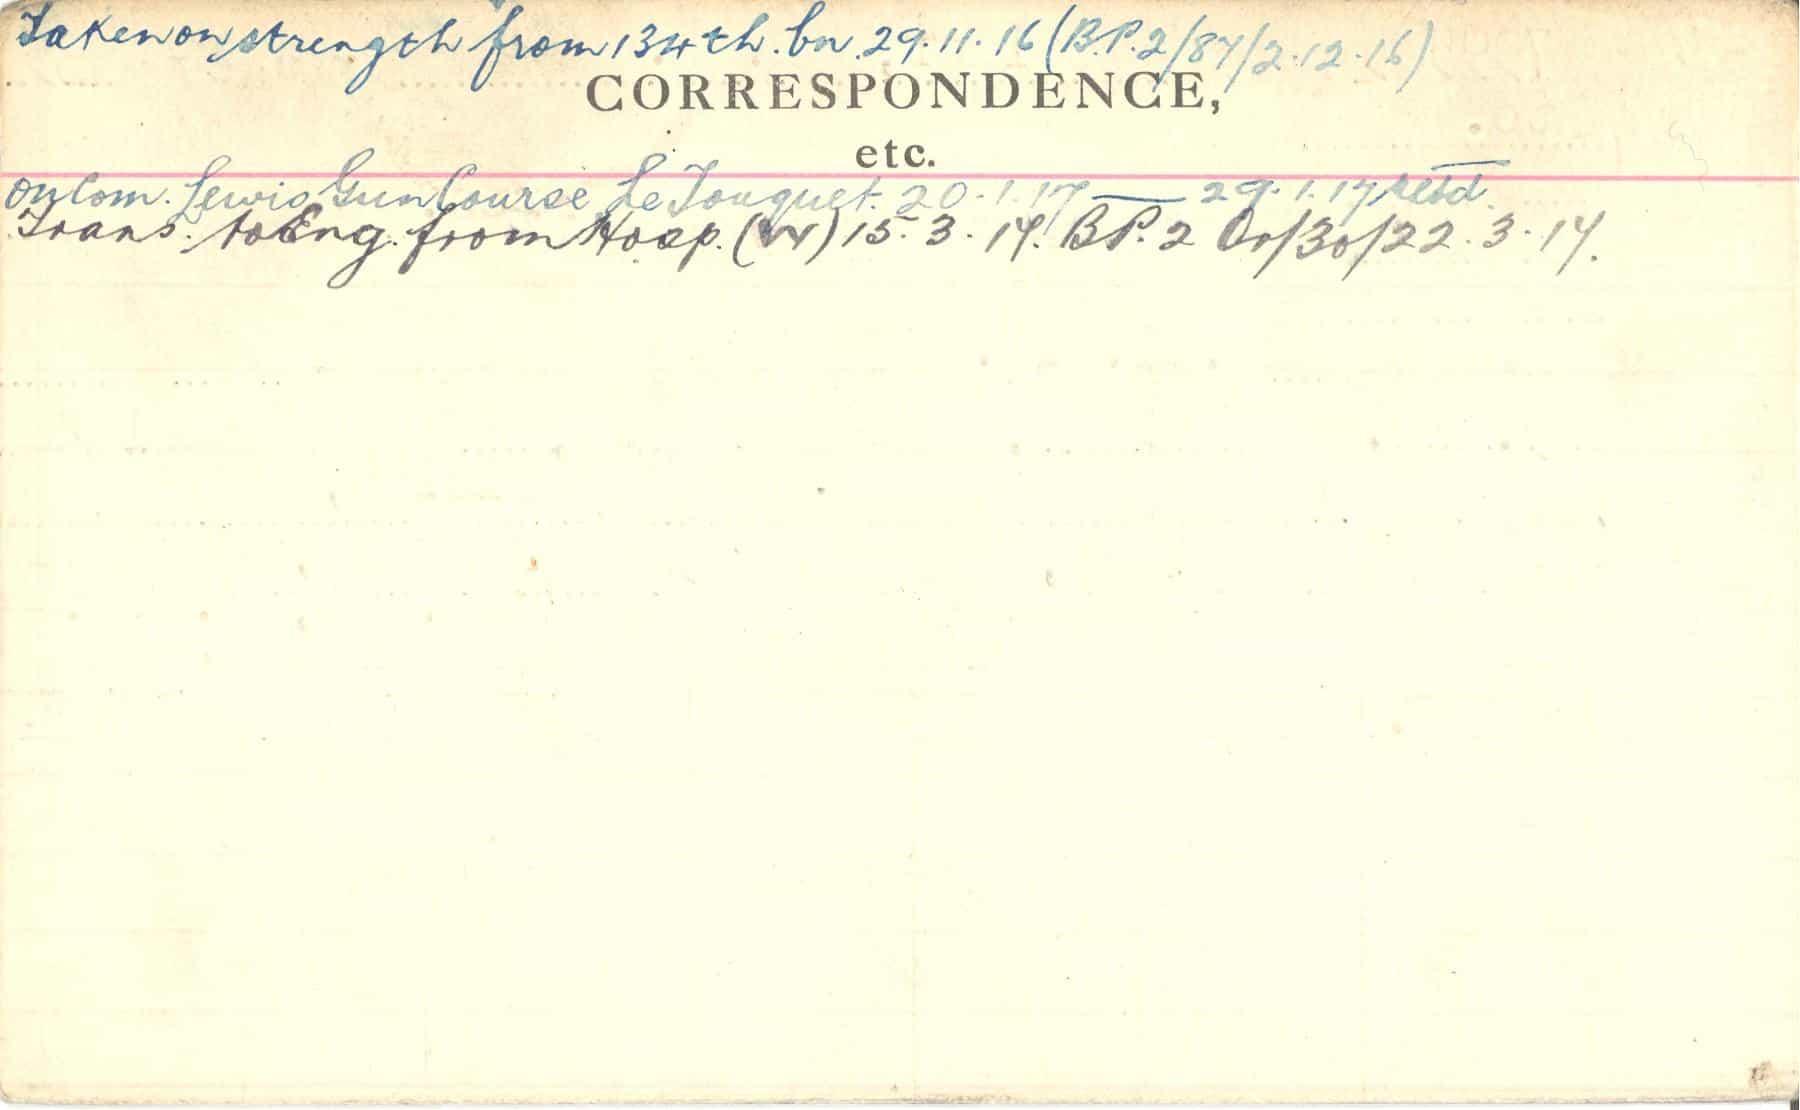 Taken on strength from 134th. bn. 29.11.16 (B.P.2/87/2.12.16)
CORRESPONDENCE,
etc.
On Com. Lewis Gun Course Le Touquet. 20.1.17 — 29.1.17 retd.
Trans. to Eng. from Hosp. (W) 15.3.17. B.P. 2 Or/30/22.3.17.